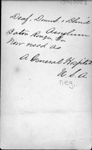 Deaf, Dumb & Blind
Asylum
Baton Rouge La
Now used as
A General Hospital
U S A